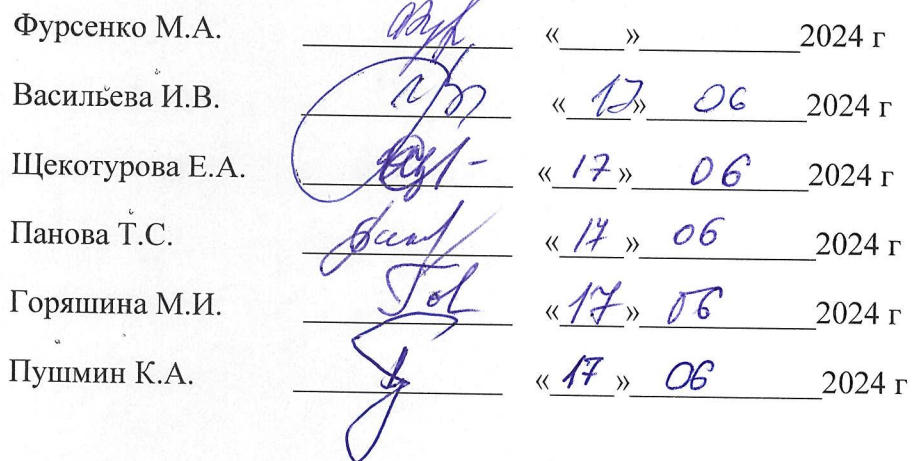 Фурсенко М.А. «____»__________2024 г
Васильева И.В. «17» 06 2024 г
Щекотурова Е.А. «17» 06 2024 г
Панова Т.С. «17» 06 2024 г
Горяшина М.И. «17» 06 2024 г
Пушмин К.А. «17» 06 2024 г